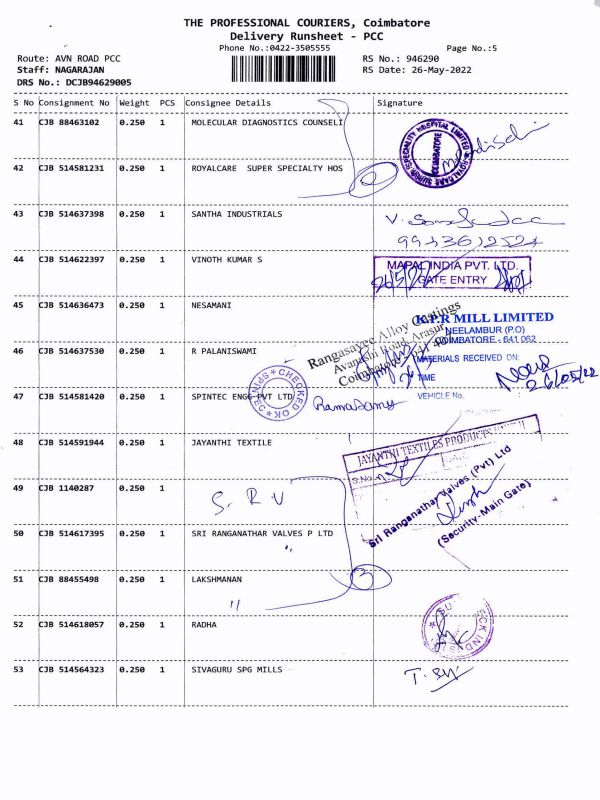 THE PROFESSIONAL COURIERS, Coimbatore
Delivery Runsheet - PCC
Phone No.:0422-3505555
Page No.:5
Route: AVN ROAD PCC
RS No.: 946290
Staff: NAGARAJAN
RS Date: 26-May-2022
DRS No.: DCJB94629005
S No Consignment No Weight PCS Consignee Details Signature
41 CJB 88463102 0.250 1 MOLECULAR DIAGNOSTICS COUNSELI
ROYALCARE SUPER SPECIALITY HOSPITAL LIMITED
COIMBATORE
42 CJB 514581231 0.250 1 ROYALCARE SUPER SPECIALTY HOS
2
43 CJB 514637398 0.250 1 SANTHA INDUSTRIALS
44 CJB 514622397 0.250 1 VINOTH KUMAR S
MAPAL INDIA PVT. LTD.
GATE ENTRY
45 CJB 514636473 0.250 1 NESAMANI
Rangasayee Alloy Castings
Avanashi Road, Arasur
Coimbatore - 641 407
K.P.R MILL LIMITED
NEELAMBUR (P.O)
COIMBATORE - 641 062
46 CJB 514637530 0.250 1 R PALANISWAMI
MATERIALS RECEIVED ON:
TIME
26/05/22
47 CJB 514581420 0.250 1 SPINTEC ENGG PVT LTD
CHECKED OK
SPINTEC
Ramasamy
VEHICLE No.
48 CJB 514591944 0.250 1 JAYANTHI TEXTILE
JAYANTHI TEXTILES PRODUCTS
S.No
49 CJB 1140287 0.250 1
S. R V
Sri Ranganathar Valves (Pvt) Ltd
(Security-Main Gate)
50 CJB 514617395 0.250 1 SRI RANGANATHAR VALVES P LTD
"
51 CJB 88455498 0.250 1 LAKSHMANAN
"
3
52 CJB 514618057 0.250 1 RADHA
53 CJB 514564323 0.250 1 SIVAGURU SPG MILLS